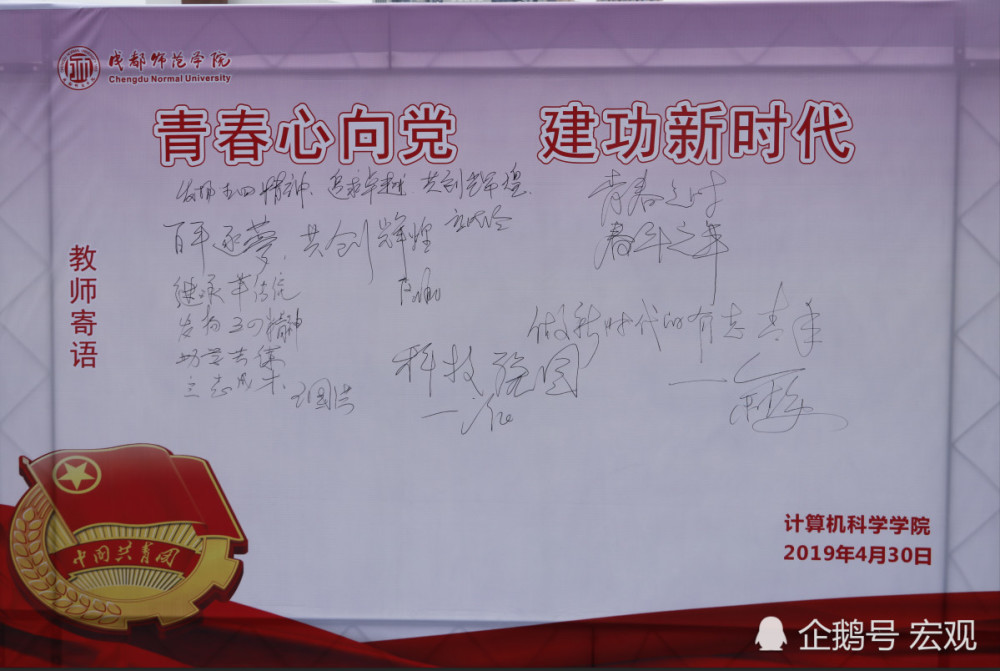 成都师范学院
Chengdu Normal University
青春心向党 建功新时代
教师寄语
发扬五四精神、追求卓越、共创辉煌.
百年逐梦,共创辉煌
青春之时
奋斗之年
继承革传统
发扬五四精神
立志成
做新时代的有志青年
科技强国
中国共青团
计算机科学学院
2019年4月30日
企鹅号 宏观